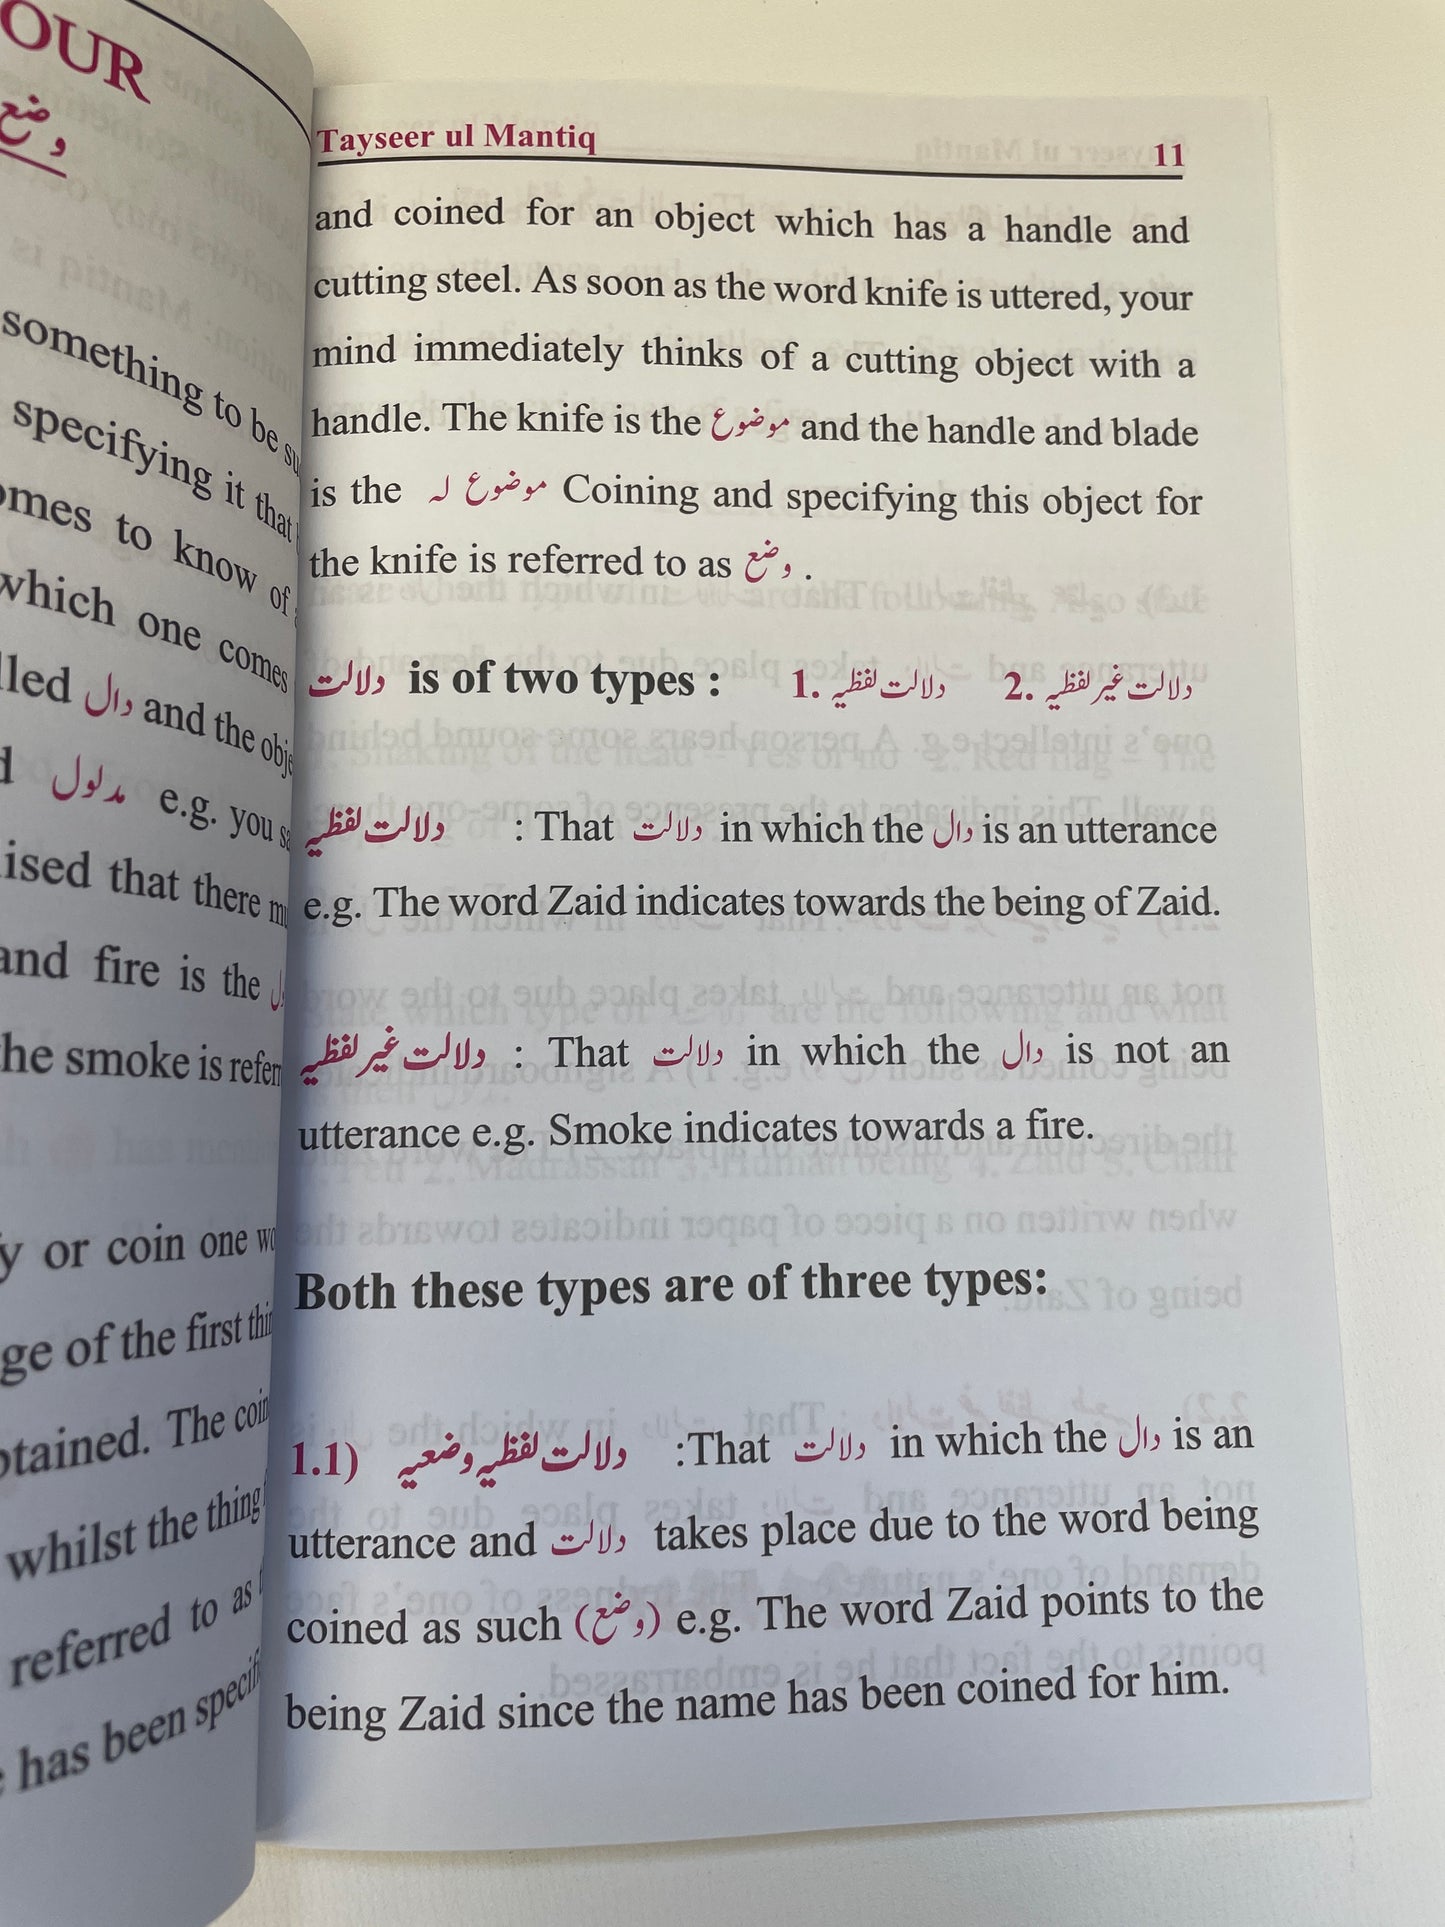 OUR
وضع
something to be
specifying it that
omes to know of
which one comes
lled دال and the
مدلول e.g. you
ised that there
and fire is the
the smoke is
y or coin one
ge of the first
otained. The
whilst the thing
referred to as
has been
Tayseer ul Mantiq 11
and coined for an object which has a handle and
cutting steel. As soon as the word knife is uttered, your
mind immediately thinks of a cutting object with a
handle. The knife is the موضوع and the handle and blade
is the موضوع لہ Coining and specifying this object for
the knife is referred to as وضع .
دلالت is of two types : 1. دلالت لفظیہ 2. دلالت غیر لفظیہ
دلالت لفظیہ : That دلالت in which the دال is an utterance
e.g. The word Zaid indicates towards the being of Zaid.
دلالت غیر لفظیہ : That دلالت in which the دال is not an
utterance e.g. Smoke indicates towards a fire.
Both these types are of three types:
1.1) دلالت لفظیہ وضعیہ :That دلالت in which the دال is an
utterance and دلالت takes place due to the word being
coined as such (وضع) e.g. The word Zaid points to the
being Zaid since the name has been coined for him.